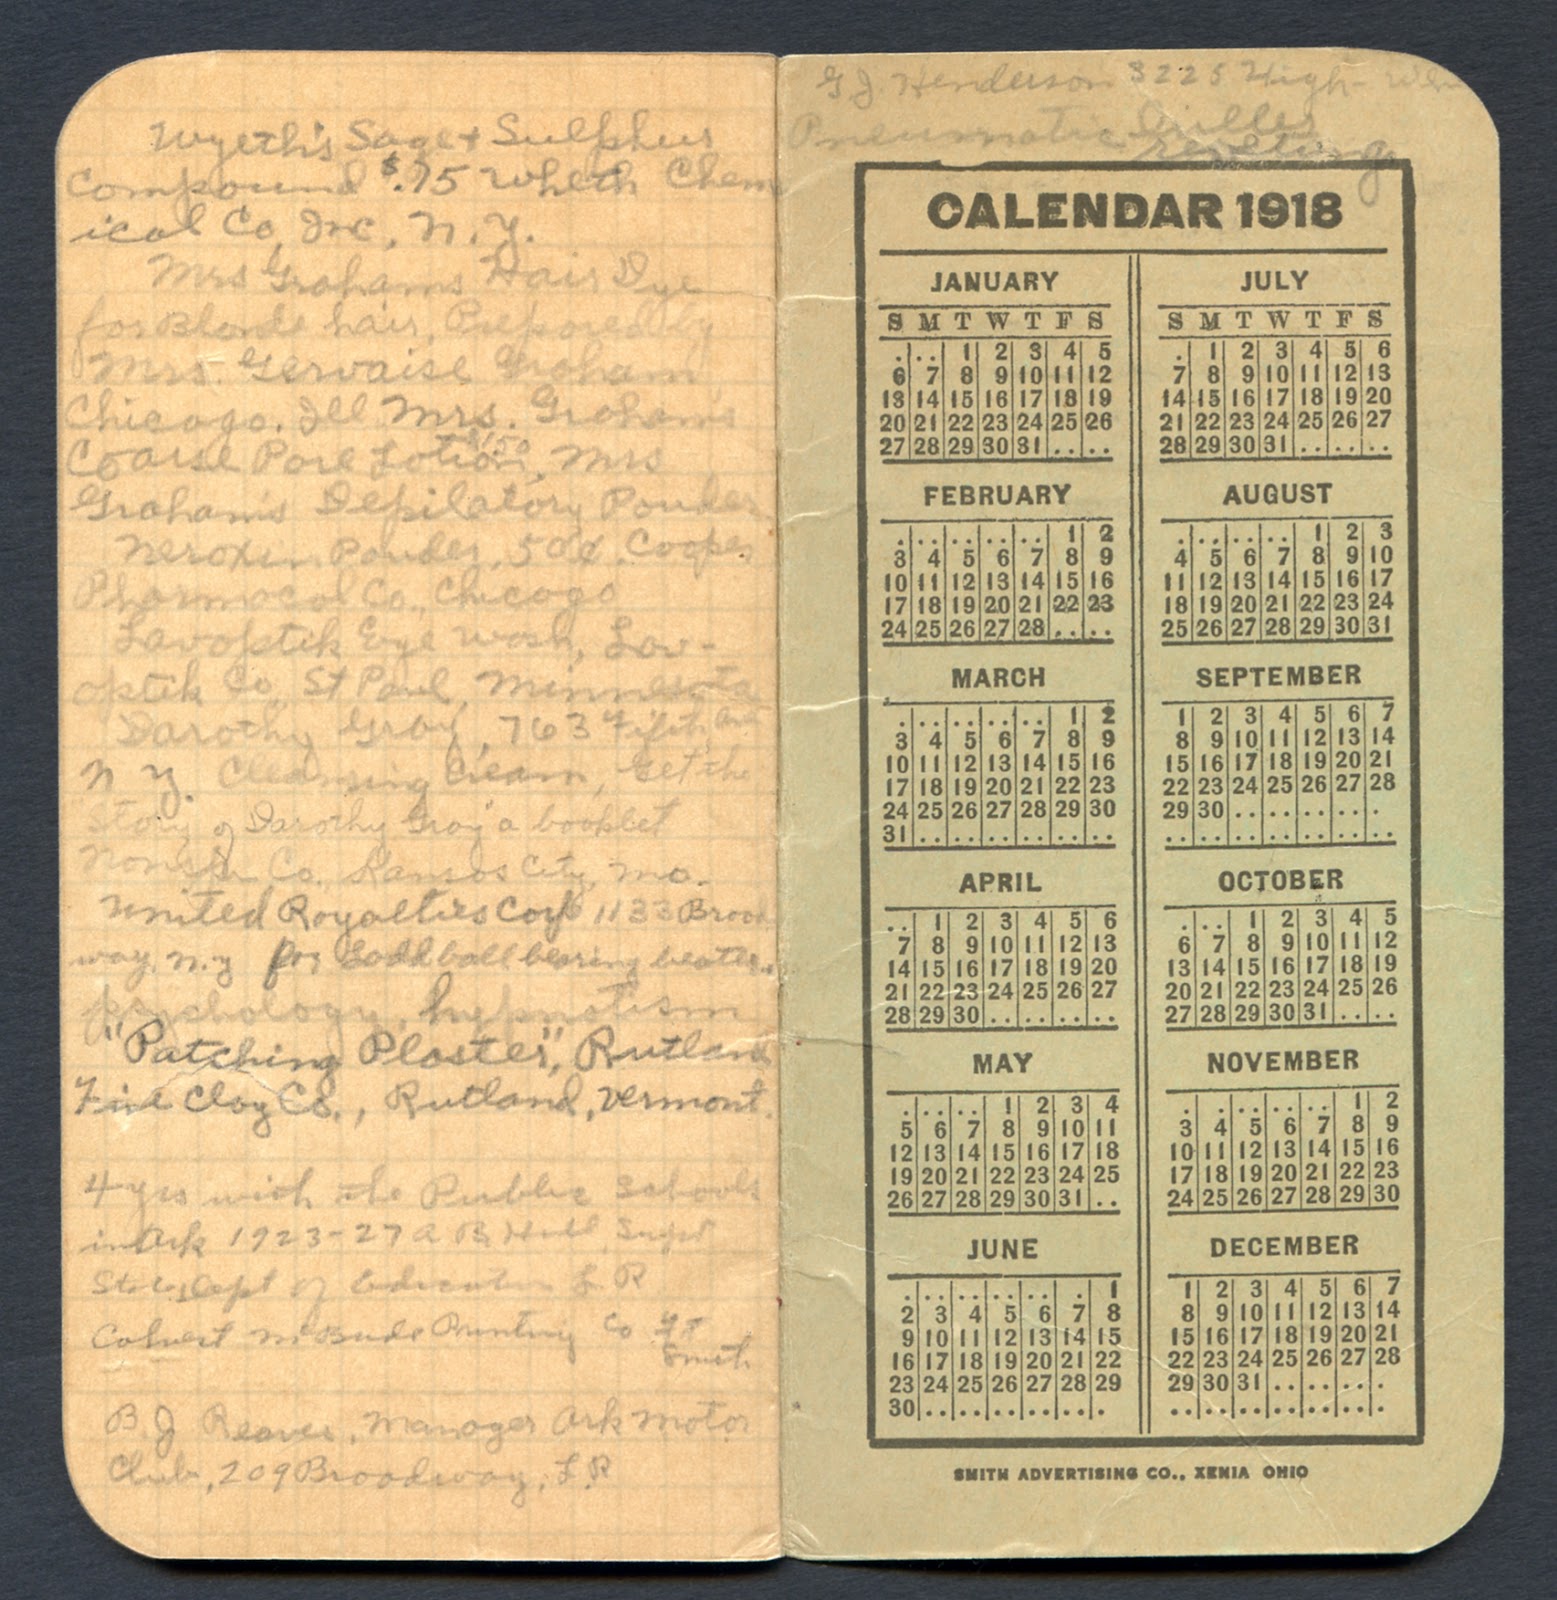 Wyeth's Sage & Sulphur
Compound $.75 Wheth Chem
ical Co, Inc, N.Y.
Mrs Grahams Hair Dye
for Blonde hair, Prepared by
Mrs. Gervaise Graham
Chicago. Ill Mrs. Graham's
$1.50
Coarse Pore Lotion, Mrs
Graham's Depilatory Powder
Neroxin Powder, 50¢. Cooper
Pharmacal Co., Chicago
Lavoptik Eye Wash, Lav-
optik Co, St Paul, Minnesota
Darothy Gray, 763 Fifth Ave
N Y. Cleansing Cream, Get the
Story of Darothy Gray a booklet
Co. Kansas City, Mo.
United Royalties Corp 1133 Broad
way, N.Y for ball bearing
psychology, hypnotism
"Patching Plaster", Rutland
Fire Clay Co., Rutland, Vermont.
4 yrs with the Public Schools
in Ark 1923-27 A B Hill, Supt
State Dept of Education L R
Calvert McBride Printing Co Ft
Smith
B. J Reaves, Manager Ark Motor
Club, 209 Broadway, L. R
G J. Henderson 3225 High
Pneumatic Drilles
CALENDAR 1918
JANUARY
S M T W T F S
. . . 1 2 3 4 5
6 7 8 9 10 11 12
13 14 15 16 17 18 19
20 21 22 23 24 25 26
27 28 29 30 31 . . . .
FEBRUARY
. . . . . . . . . 1 2
3 4 5 6 7 8 9
10 11 12 13 14 15 16
17 18 19 20 21 22 23
24 25 26 27 28 . . . .
MARCH
. . . . . . . . . 1 2
3 4 5 6 7 8 9
10 11 12 13 14 15 16
17 18 19 20 21 22 23
24 25 26 27 28 29 30
31 . . . . . . . . . . .
APRIL
. . 1 2 3 4 5 6
7 8 9 10 11 12 13
14 15 16 17 18 19 20
21 22 23 24 25 26 27
28 29 30 . . . . . . .
MAY
. . . . . 1 2 3 4
5 6 7 8 9 10 11
12 13 14 15 16 17 18
19 20 21 22 23 24 25
26 27 28 29 30 31 . .
JUNE
. . . . . . . . . . . 1
2 3 4 5 6 7 8
9 10 11 12 13 14 15
16 17 18 19 20 21 22
23 24 25 26 27 28 29
30 . . . . . . . . . . .
JULY
S M T W T F S
. 1 2 3 4 5 6
7 8 9 10 11 12 13
14 15 16 17 18 19 20
21 22 23 24 25 26 27
28 29 30 31 . . . . .
AUGUST
. . . . . . . 1 2 3
4 5 6 7 8 9 10
11 12 13 14 15 16 17
18 19 20 21 22 23 24
25 26 27 28 29 30 31
SEPTEMBER
1 2 3 4 5 6 7
8 9 10 11 12 13 14
15 16 17 18 19 20 21
22 23 24 25 26 27 28
29 30 . . . . . . . . .
. . . . . . . . . . . . .
OCTOBER
. . . 1 2 3 4 5
6 7 8 9 10 11 12
13 14 15 16 17 18 19
20 21 22 23 24 25 26
27 28 29 30 31 . . . .
NOVEMBER
. . . . . . . . . 1 2
3 4 5 6 7 8 9
10 11 12 13 14 15 16
17 18 19 20 21 22 23
24 25 26 27 28 29 30
DECEMBER
1 2 3 4 5 6 7
8 9 10 11 12 13 14
15 16 17 18 19 20 21
22 23 24 25 26 27 28
29 30 31 . . . . . . .
. . . . . . . . . . . . .
SMITH ADVERTISING CO., XENIA OHIO